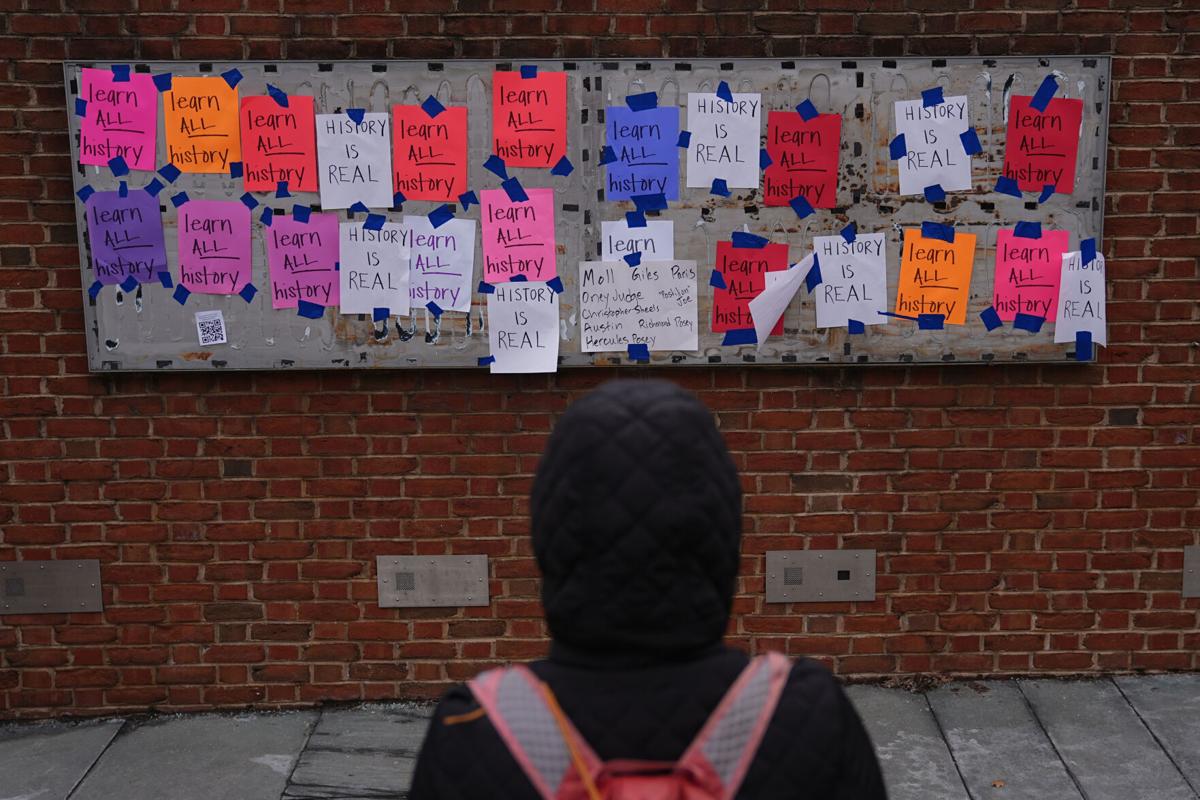 learn
ALL
history
learn
ALL
history
learn
ALL
history
HISTORY
IS
REAL
learn
ALL
history
learn
ALL
history
learn
ALL
history
HISTORY
IS
REAL
learn
ALL
history
HISTORY
IS
REAL
learn
ALL
history
learn
ALL
history
learn
ALL
history
learn
ALL
history
HISTORY
IS
REAL
learn
ALL
history
learn
ALL
history
HISTORY
IS
REAL
learn
Moll Giles Paris
Oney Judge "Postilion" Joe
Christopher Sheels
Austin Richmond Posey
Hercules Posey
learn
ALL
history
HISTORY
IS
REAL
learn
ALL
history
learn
ALL
history
HISTORY
IS
REAL